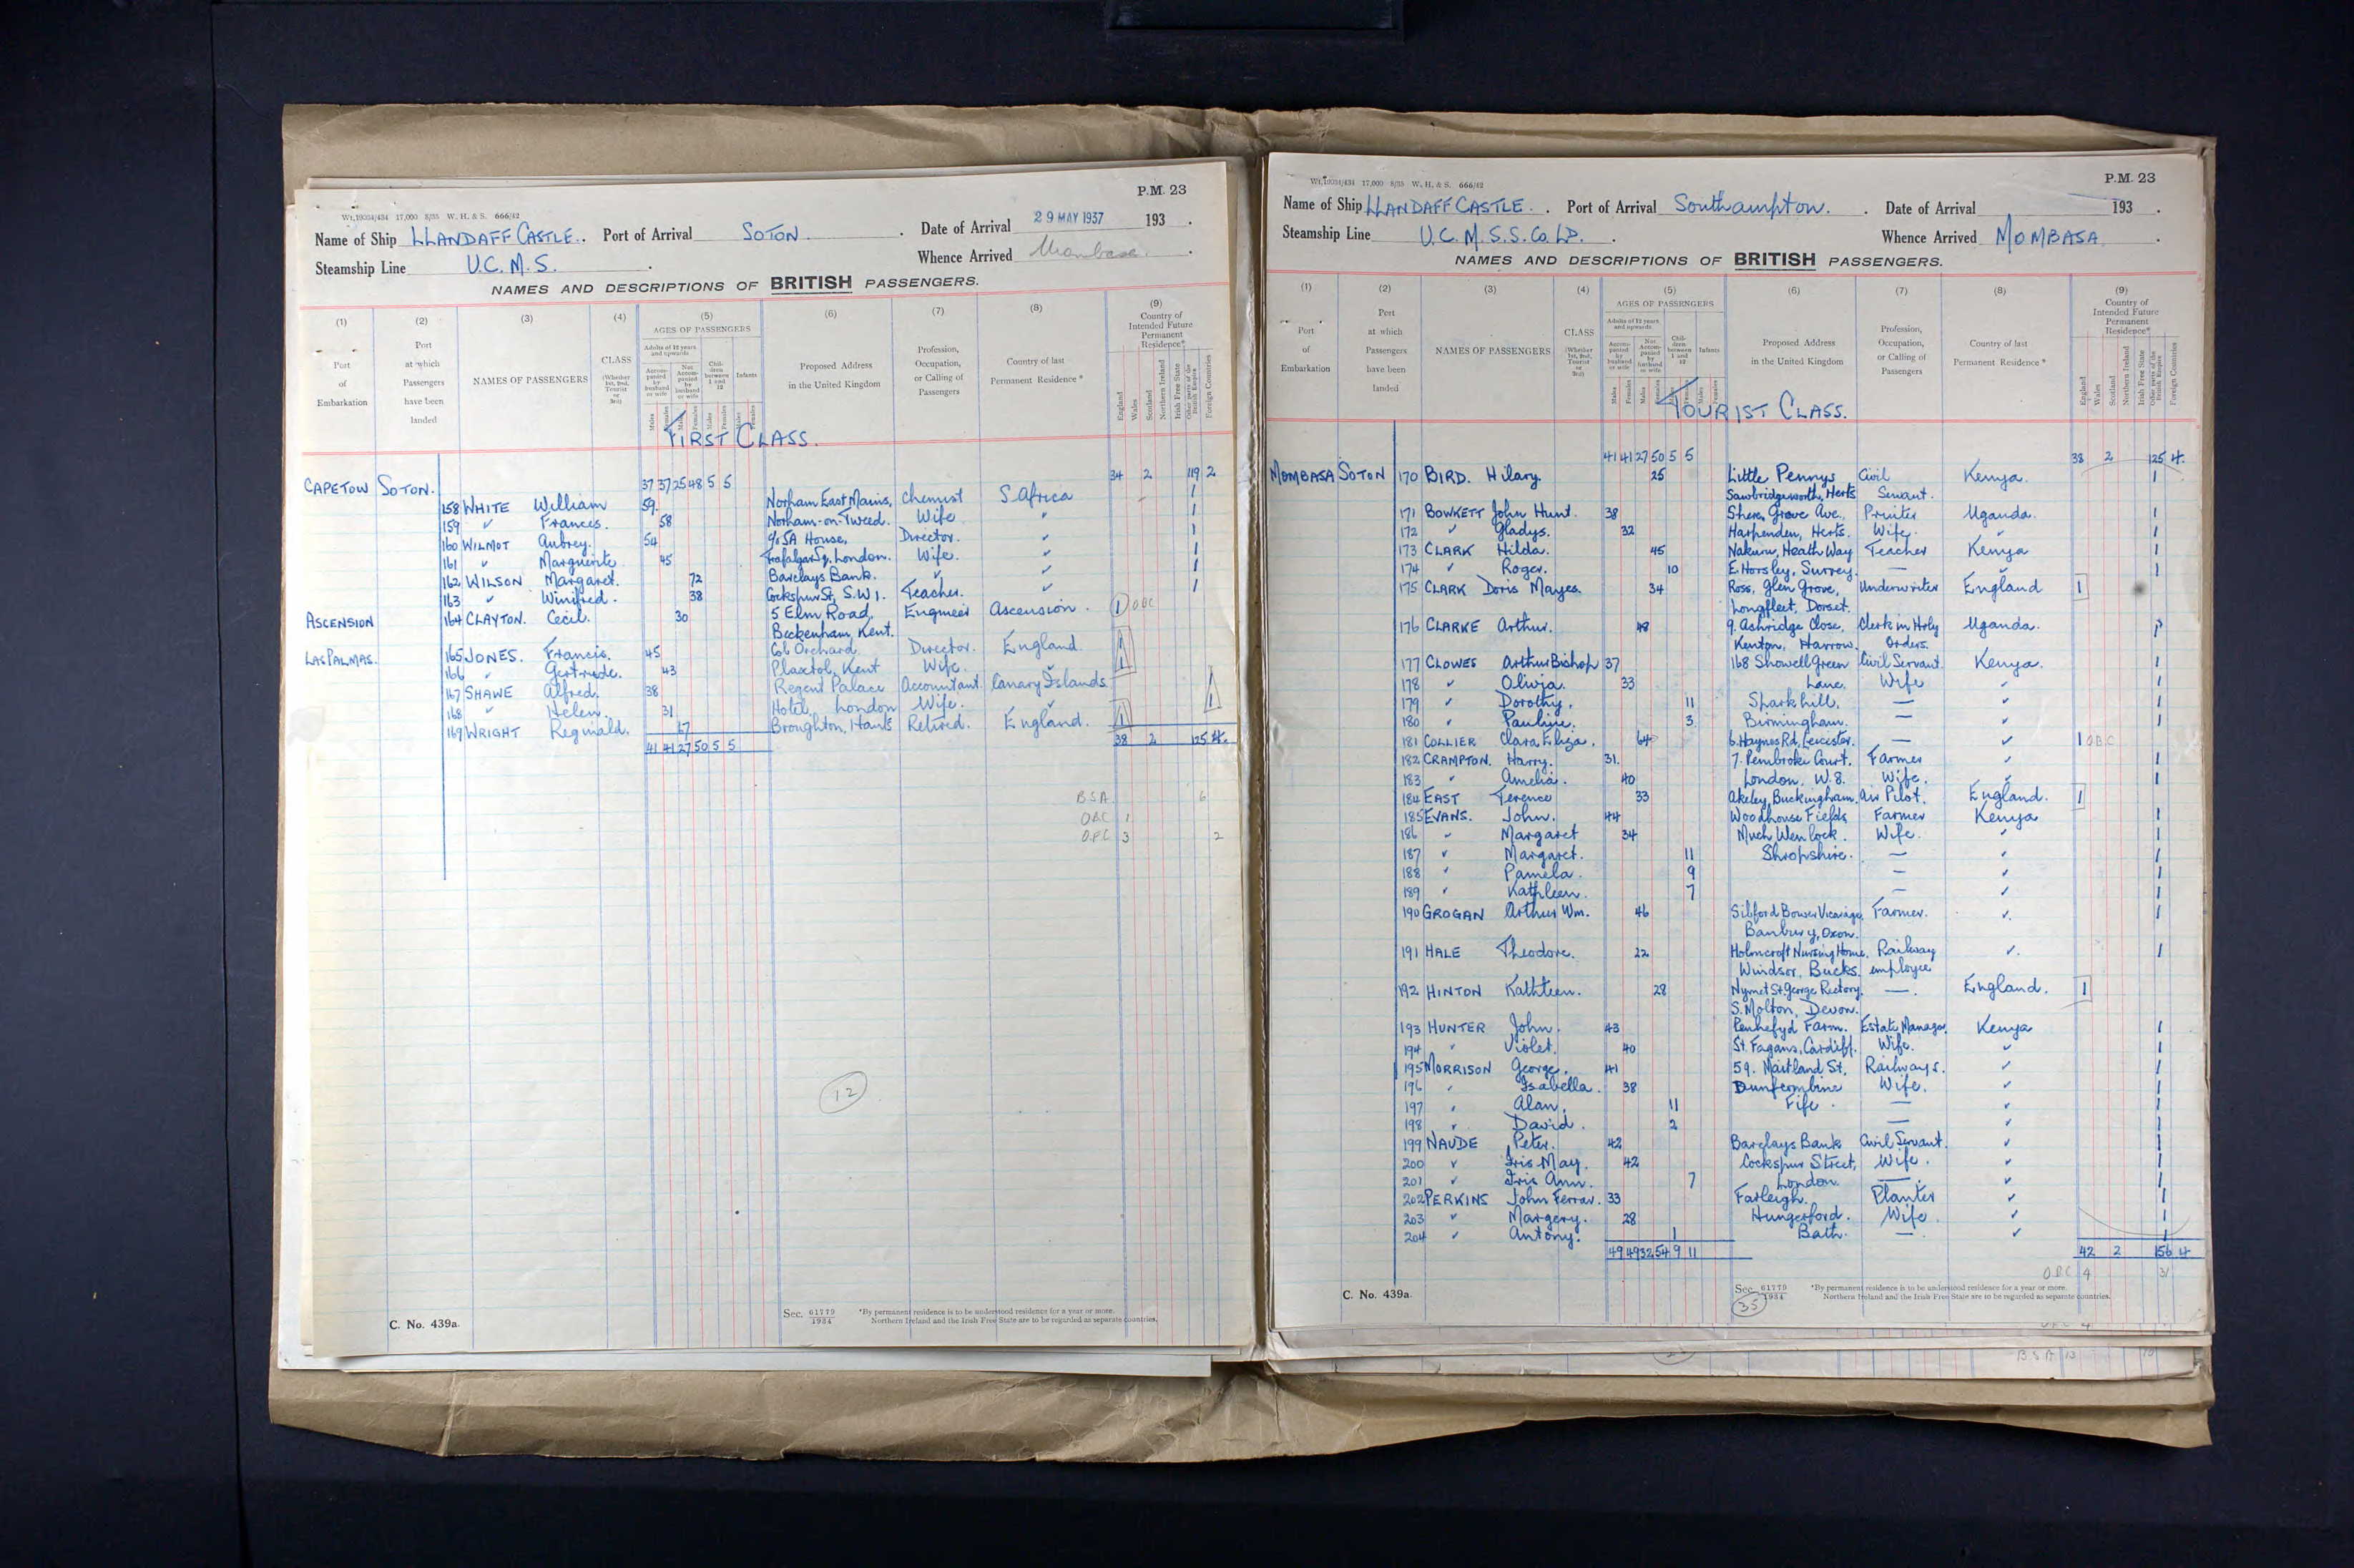 P.M. 23
Wt.19034/434 17,000 8/35 W. H. & S. 666/42
Name of Ship LLANDAFF CASTLE. Port of Arrival SOTON. Date of Arrival 29 MAY 1937 193 .
Steamship Line U.C.M.S. Whence Arrived Mombasa.
NAMES AND DESCRIPTIONS OF BRITISH PASSENGERS.
(1) (2) (3) (4) (5) (6) (7) (8) (9)
Port of Embarkation
Port at which Passengers have been landed
NAMES OF PASSENGERS
CLASS (Whether 1st, 2nd, Tourist or 3rd)
AGES OF PASSENGERS
Adults of 12 years and upwards
Accompanied by husband or wife
Not Accompanied by husband or wife
Children between 1 and 12
Infants
Males Females Males Females Males Females Males Females
Proposed Address in the United Kingdom
Profession, Occupation, or Calling of Passengers
Country of last Permanent Residence *
Country of Intended Future Permanent Residence*
England Wales Scotland Northern Ireland Irish Free State Other parts of the British Empire Foreign Countries
FIRST CLASS.
37 37 25 48 5 5 34 2 119 2
CAPETOW SOTON.
158 WHITE William 59. Norham East Mains, Chemist S. Africa 1
159 " Frances. 58 Norham-on-Tweed. Wife " 1
160 WILMOT Aubrey. 54 c/o SA House, Director. " 1
161 " Marguerite 45 Trafalgar Sq. London. Wife. " 1
162 WILSON Margaret. 72 Barclays Bank. " " 1
163 " Winifred. 38 Cockspur St, S.W1. Teacher. " 1
ASCENSION 164 CLAYTON. Cecil. 30 5 Elm Road, Engineer Ascension. 1 OBC
Beckenham, Kent.
LAS PALMAS. 165 JONES. Francis. 45 Orchard Director. England. 1
166 " Gertrude. 43 Plaxtol, Kent Wife. " 1
167 SHAWE Alfred. 38 Regent Palace Accountant. Canary Islands 1
168 " Helen. 31 Hotel, London Wife. " 1
169 WRIGHT Reginald. 67 Broughton, Hants Retired. England. 1
41 41 27 50 5 5 38 2 125 4.
B.S.A. 6
OBC 1
O.F.C. 3 2
12
C. No. 439a.
Sec. 61779/1934
*By permanent residence is to be understood residence for a year or more.
Northern Ireland and the Irish Free State are to be regarded as separate countries.
P.M. 23
Wt.19034/434 17,000 8/35 W. H. & S. 666/42
Name of Ship LLANDAFF CASTLE. Port of Arrival Southampton. Date of Arrival 193 .
Steamship Line U.C.M.S.S.Co.LD. Whence Arrived MOMBASA.
NAMES AND DESCRIPTIONS OF BRITISH PASSENGERS.
(1) (2) (3) (4) (5) (6) (7) (8) (9)
Port of Embarkation
Port at which Passengers have been landed
NAMES OF PASSENGERS
CLASS (Whether 1st, 2nd, Tourist or 3rd)
AGES OF PASSENGERS
Adults of 12 years and upwards
Accompanied by husband or wife
Not Accompanied by husband or wife
Children between 1 and 12
Infants
Males Females Males Females Males Females Males Females
Proposed Address in the United Kingdom
Profession, Occupation, or Calling of Passengers
Country of last Permanent Residence *
Country of Intended Future Permanent Residence*
England Wales Scotland Northern Ireland Irish Free State Other parts of the British Empire Foreign Countries
TOURIST CLASS.
41 41 27 50 5 5 38 2 125 4.
MOMBASA SOTON 170 BIRD. Hilary. 25 Little Pennys Civil Kenya. 1
Sawbridgeworth, Herts Servant.
171 BOWKETT John Hunt. 38 Grove Ave., Printer Uganda. 1
172 " Gladys. 32 Harpenden, Herts. Wife. " 1
173 CLARK Hilda. 45 Nakuru, Heath Way Teacher Kenya 1
174 " Roger. 10 E. Horsley, Surrey. — " 1
175 CLARK Doris Mayes. 34 Ross, Glen Grove, Underwriter England 1
Longfleet, Dorset.
176 CLARKE Arthur. 48 9. Ashridge Close, Clerk in Holy Uganda. 1
Kenton, Harrow. Orders.
177 CLOWES Arthur Bishop 37 168 Showell Green Civil Servant. Kenya. 1
178 " Olivia. 33 Lane, Wife " 1
179 " Dorothy. 11 Sparkhill, — " 1
180 " Pauline. 3 Birmingham. — " 1
181 COLLIER Clara Eliza. 64 6. Haynes Rd, Leicester. — " 1 OBC
182 CRAMPTON. Harry. 31. 7. Pembroke Court. Farmer " 1
183 " Amelia. 40 London, W.8. Wife. " 1
184 EAST Terence 33 Akeley, Buckingham. Air Pilot. England. 1
185 EVANS. John. 44 Woodhouse Fields, Farmer Kenya 1
186 " Margaret 34 Much Wenlock. Wife. " 1
187 " Margaret. 11 Shropshire. — " 1
188 " Pamela. 9 — " 1
189 " Kathleen. 7 — " 1
190 GROGAN Arthur Wm. 46 Sibford Gower Vicarage, Farmer. " 1
Banbury, Oxon.
191 HALE Theodore. 22 Holmcroft Nursing Home, Railway " 1
Windsor, Bucks. employee
192 HINTON Kathleen. 28 Nymet St. George Rectory, —. England. 1
S. Molton, Devon.
193 HUNTER John. 43 Farm. Estate Manager. Kenya 1
194 " Violet. 40 St. Fagans, Cardiff. Wife. " 1
195 MORRISON George. 41 59. Maitland St, Railways. " 1
196 " Isabella. 38 Dunfermline Wife. " 1
197 " Alan. 11 Fife. — " 1
198 " David. 2 — " 1
199 NAUDE Peter. 42 Barclays Bank Civil Servant. " 1
200 " Iris May. 42 Cockspur Street, Wife. " 1
201 " Iris Ann. 7 London. — " 1
202 PERKINS John Ferrar. 33 Farleigh. Planter " 1
203 " Margery. 28 Hungerford. Wife. " 1
204 " Antony. 1 Bath. — " 1
49 49 32 54 9 11 42 2 156 4
O.B.C. 4 31
C. No. 439a.
Sec. 61779/1934
*By permanent residence is to be understood residence for a year or more.
Northern Ireland and the Irish Free State are to be regarded as separate countries.
35
B S A 13